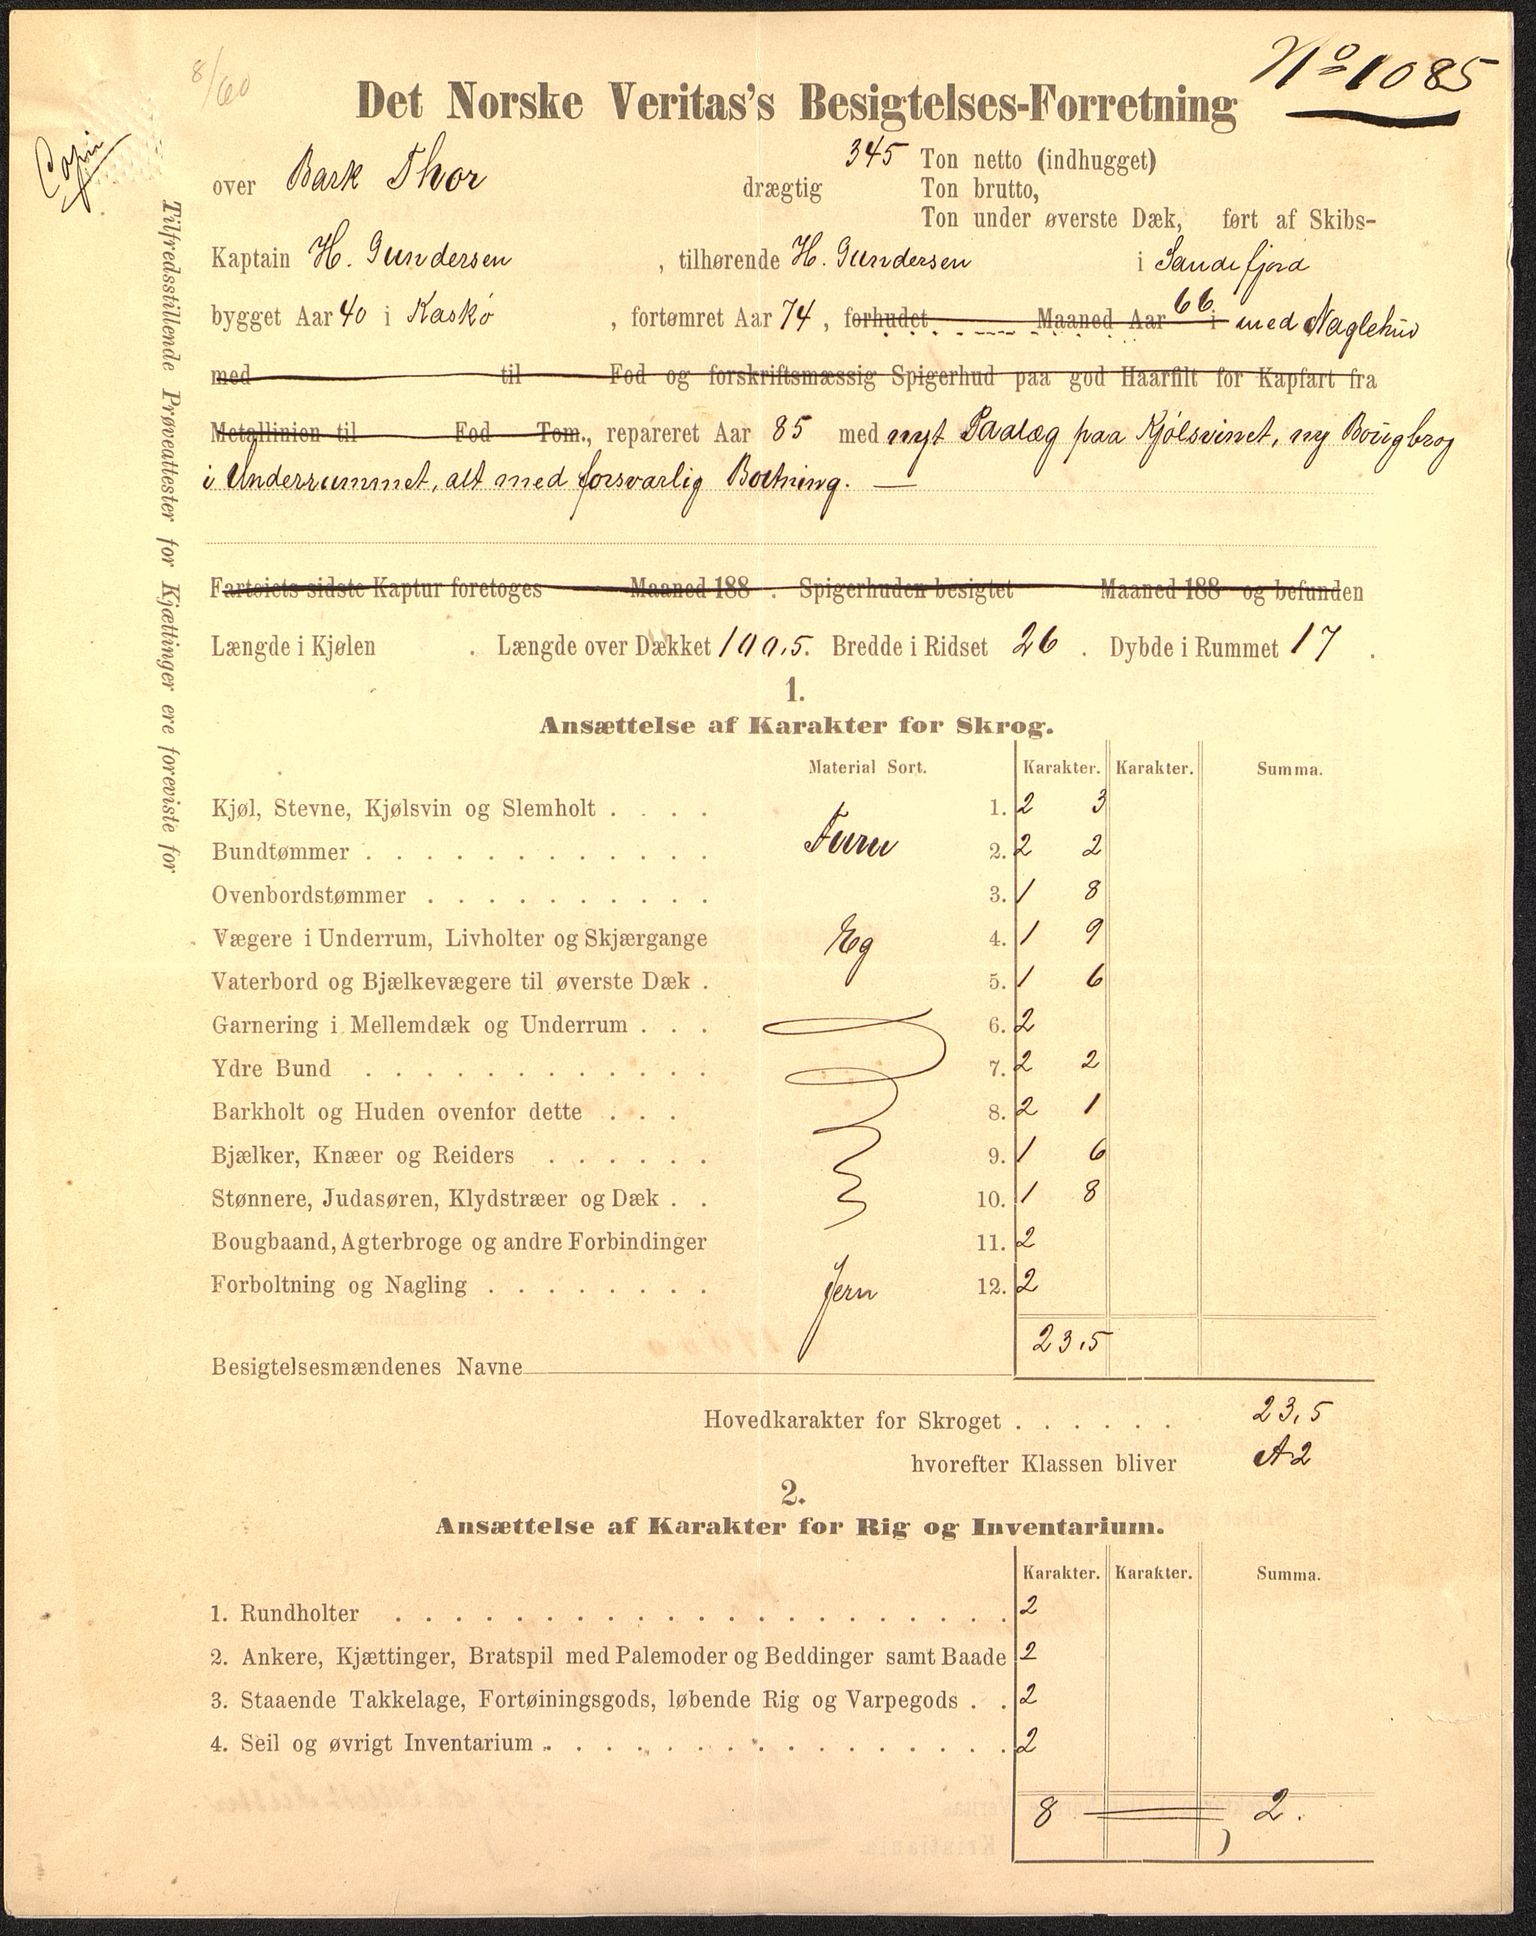 8/60
No 1085
Copi
Det Norske Veritas's Besigtelses-Forretning
over Bark Thor drægtig 345 Ton netto (indhugget)
Ton brutto,
Ton under øverste Dæk, ført af Skibs-
Kaptain H. Gundersen , tilhørende H. Gundersen i Sandefjord
bygget Aar 40 i Kaskø , fortømret Aar 74 , forhudet Maaned Aar 66 i med Naglehud
med til Fod og forskriftsmæssig Spigerhud paa god Haarfilt for Kapfart fra
Metallinien til Fod Tom., repareret Aar 85 med nyt Paalæg paa Kjølsvinet, ny Bougbrog
i Underrummet, alt med forsvarlig Boltning. —
Fartøiets sidste Kaptur foretoges Maaned 188 . Spigerhuden besigtet Maaned 188 og befunden
Længde i Kjølen . Længde over Dækket 100,5. Bredde i Ridset 26 . Dybde i Rummet 17 .
Tilfredsstillende Prøveattester for Kjættinger ere foreviste for
1.
Ansættelse af Karakter for Skrog.
Material Sort. Karakter. Karakter. Summa.
Kjøl, Stevne, Kjølsvin og Slemholt . . . . 1. 2 3
Bundtømmer . . . . . . . . . . . . Furu 2. 2 2
Ovenbordstømmer . . . . . . . . . . 3. 1 8
Vægere i Underrum, Livholter og Skjærgange Eg 4. 1 9
Vaterbord og Bjælkevægere til øverste Dæk . 5. 1 6
Garnering i Mellemdæk og Underrum . . . 6. 2
Ydre Bund . . . . . . . . . . . . 7. 2 2
Barkholt og Huden ovenfor dette . . . 8. 2 1
Bjælker, Knæer og Reiders . . . . . . 9. 1 6
Stønnere, Judasøren, Klydstræer og Dæk . . 10. 1 8
Bougbaand, Agterbroge og andre Forbindinger 11. 2
Forboltning og Nagling . . . . . . . . Jern 12. 2
23,5
Besigtelsesmændenes Navne
Hovedkarakter for Skroget . . . . . . 23,5
hvorefter Klassen bliver A2
2.
Ansættelse af Karakter for Rig og Inventarium.
Karakter. Karakter. Summa.
1. Rundholter . . . . . . . . . . . . . . . . . . . . 2
2. Ankere, Kjættinger, Bratspil med Palemoder og Beddinger samt Baade 2
3. Staaende Takkelage, Fortøiningsgods, løbende Rig og Varpegods . . 2
4. Seil og øvrigt Inventarium . . . . . . . . . . . . . . . 2
8 2.